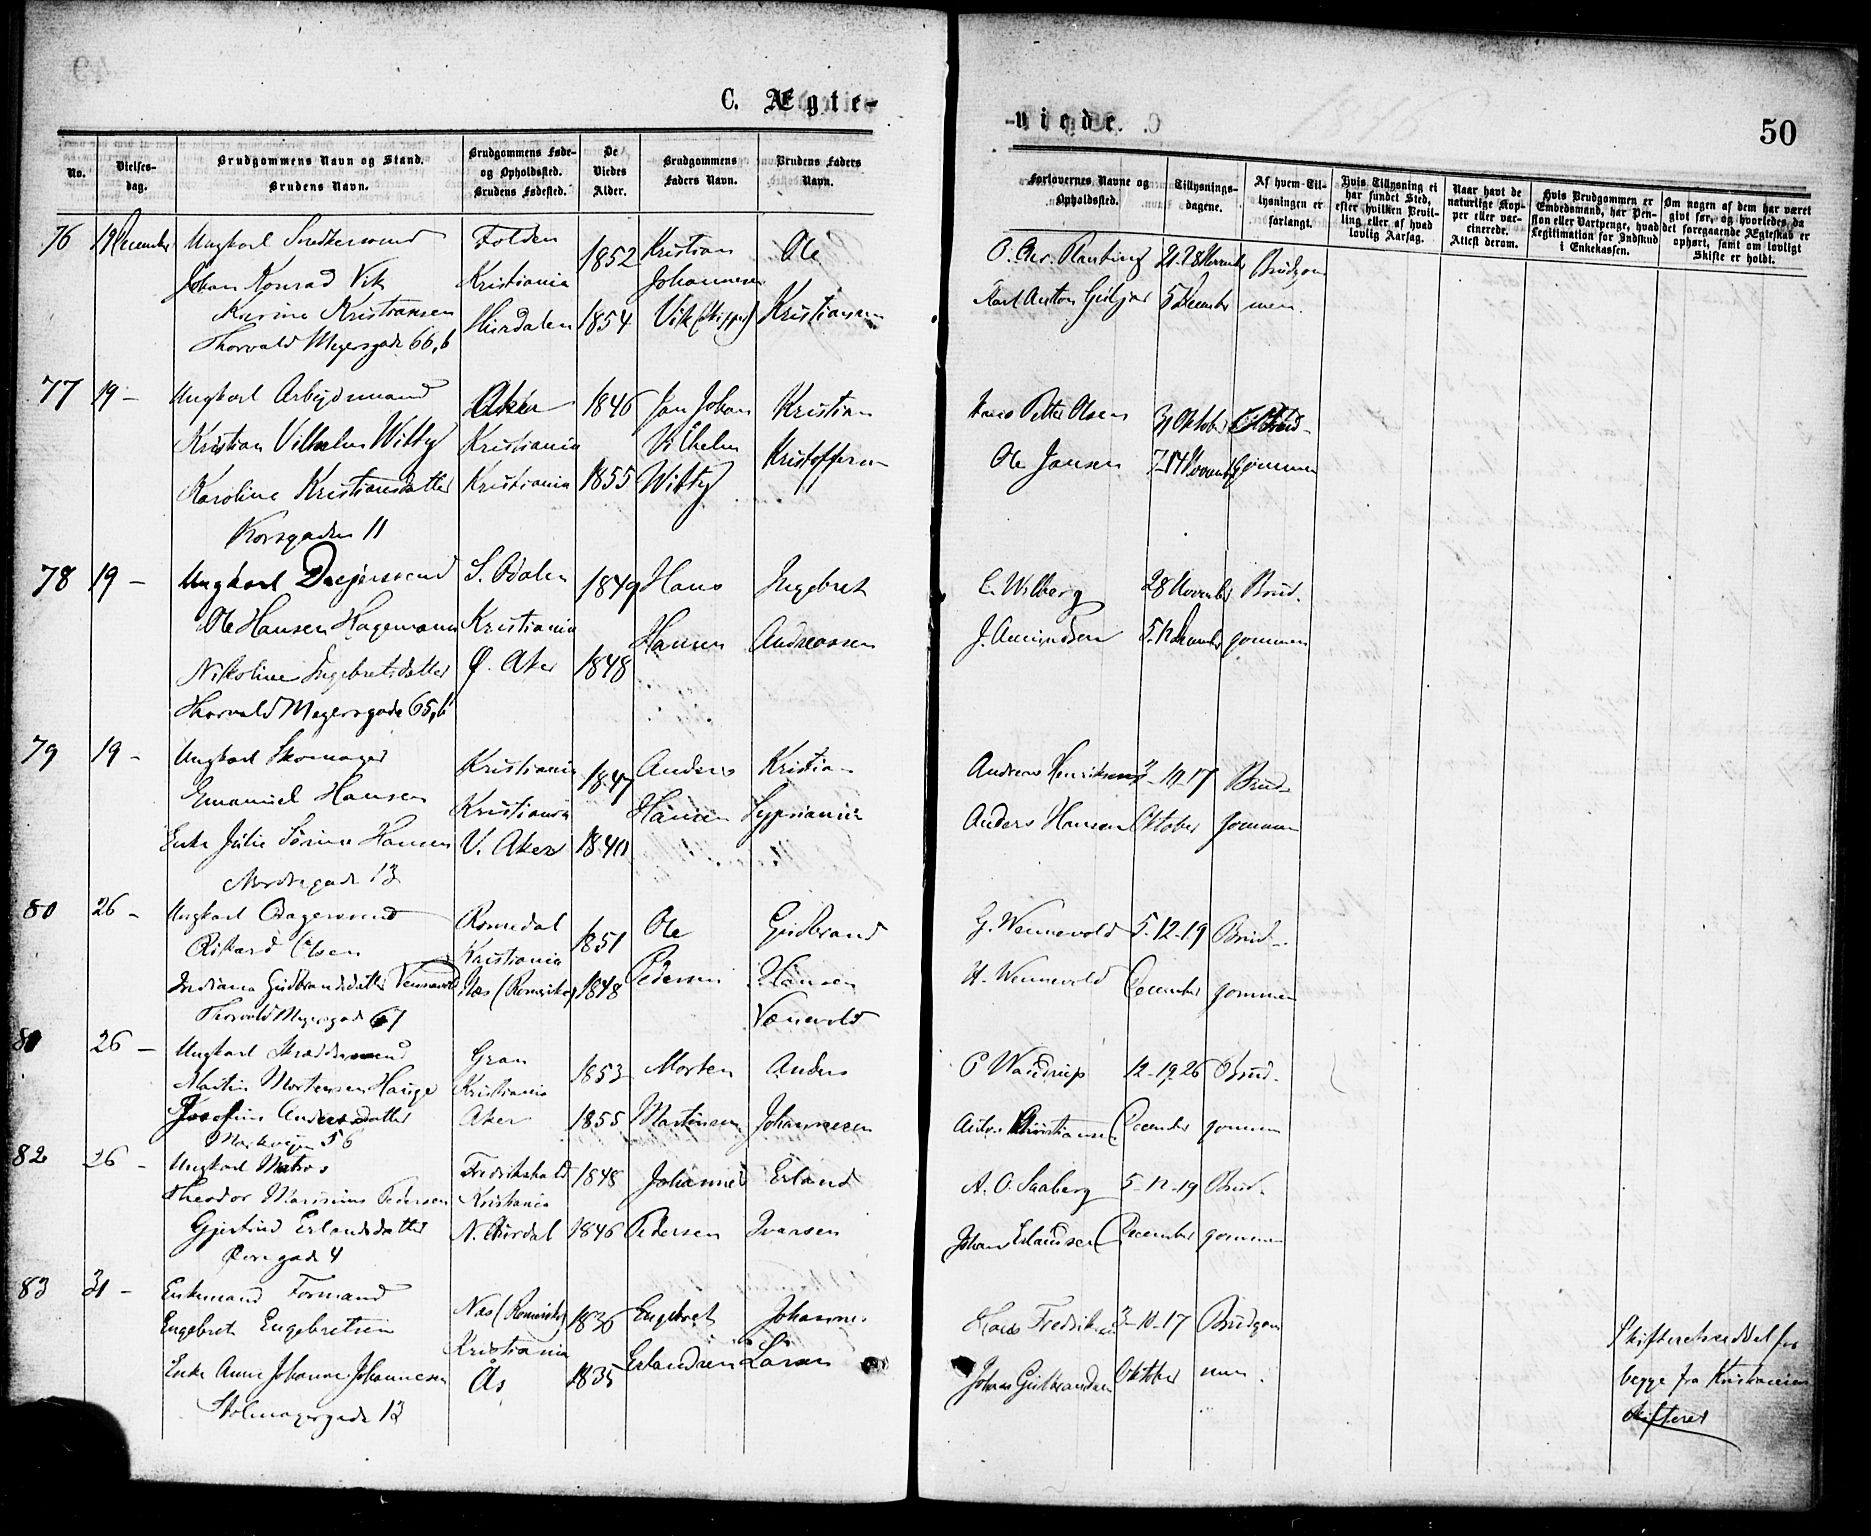 C. Ægte-
No.
Vielses-
dag.
Brudgommens Navn og Stand.
Brudens Navn.
Brudgommens Føde-
og Opholdssted.
Brudens Fødested.
De
Viedes
Alder.
Brudgommens
Faders Navn.
Brudens Faders
Navn.
76 19 December Ungkarl Snedkersvend Folden 1852 Kristian Ole
Johan Konrad Vik Kristiania Johannesen
Karine Kristiansen Hurdalen 1854 Vik (Skipper) Kristiansen
Thorvald Meyersgade 66, b
77 19 - Ungkarl Arbejdsmand Aker 1846 Jan Johan Kristian
Kristian Vilhelm Kristiania Vilhelm
Karoline Kristiansdatter Kristiania 1855 Kristoffersen
Korsgaden 11
78 19 - Ungkarl S. Odalen 1849 Hans Ingebret
Ole Hansen Hagemann Kristiania Hansen Andreassen
Nikoline Ingebretsdatter Ø. Aker 1848
Thorvald Meyersgade 65, b
79 19 - Ungkarl Skomager Kristiania 1847 Anders Kristian
Emanuel Hansen Kristiania Hansen
Enke Julie Sørine Hansen V. Aker 1840
Nordregade 13
80 26 - Ungkarl Bagersvend Romedal 1851 Ole Gudbrand
Rikard Olsen Kristiania Pedersen Hansen
Indiana Gudbrandsdatter Næs (Romerike) 1848
Thorvald Meyersgade 67
81 26 - Ungkarl Skræddersvend Gran 1853 Morten Anders
Martin Mortensen Hauge Kristiania
Josefine Andersdatter Aker 1855 Mortensen Johannesen
Markvejen 56
82 26 - Ungkarl Matros Fredrikshald 1848 Johannes Erland
Theodor Marinius Pedersen Kristiania
Gjertrud Erlandsdatter N. Aurdal 1846 Pedersen Ivarsen
Øvregade 4
83 31 - Enkemand Formand Næs (Romerike) 1836 Engebret Johannes
Engebret Engebretsen Kristiania Erlandsen Larsen
Enke Anne Johanne Johannesen Ås 1835
Holmagergade 13
viede.
50
Forlovernes Navne og
Opholdssted.
Tillysnings-
dagene.
Af hvem Til-
lysningen er
forlangt.
Hvis Tillysning ei
har fundet Sted,
efter hvilken Bevil-
ling eller af hvad
lovlig Aarsag.
Naar havt de
naturlige Kop-
per eller vac-
cinerede.
Attest derom.
Hvis Brudgommen er
Embedsmand, har Pen-
sion eller Vartpenge, hvad
Legitimation for Indskud
i Enkekassen.
Om nogen af dem har været
givt før, og hvorledes da
det foregaaende Ægteskab er
ophørt, samt om lovligt
Skifte er holdt.
O. Chr. 21-28 November Brudgom
Karl Anton 5 December men.
Hans Petter Olsen 31 Oktober Brud-
Ole Jansen 7-14 November gommen
C. Wilberg 28 November Brud-
J. Amundsen 5-12 December gommen
Andreas Henriksen 3-10-17 Brud-
Anders Hansen Oktober gommen
G. Wennevold 5-12-19 Brud-
H. Wennevold December gommen
12-19-26 Brud-
Anton Christiansen December gommen
A. O. Saaberg 5-12-19 Brud-
Johan Erlandsen December gommen
Hans Fredriksen 3-10-17 Brudgom
Johan Gulbrandsen Oktober men.
Skifteretseddel for
begge fra Kristiania
Skifteret